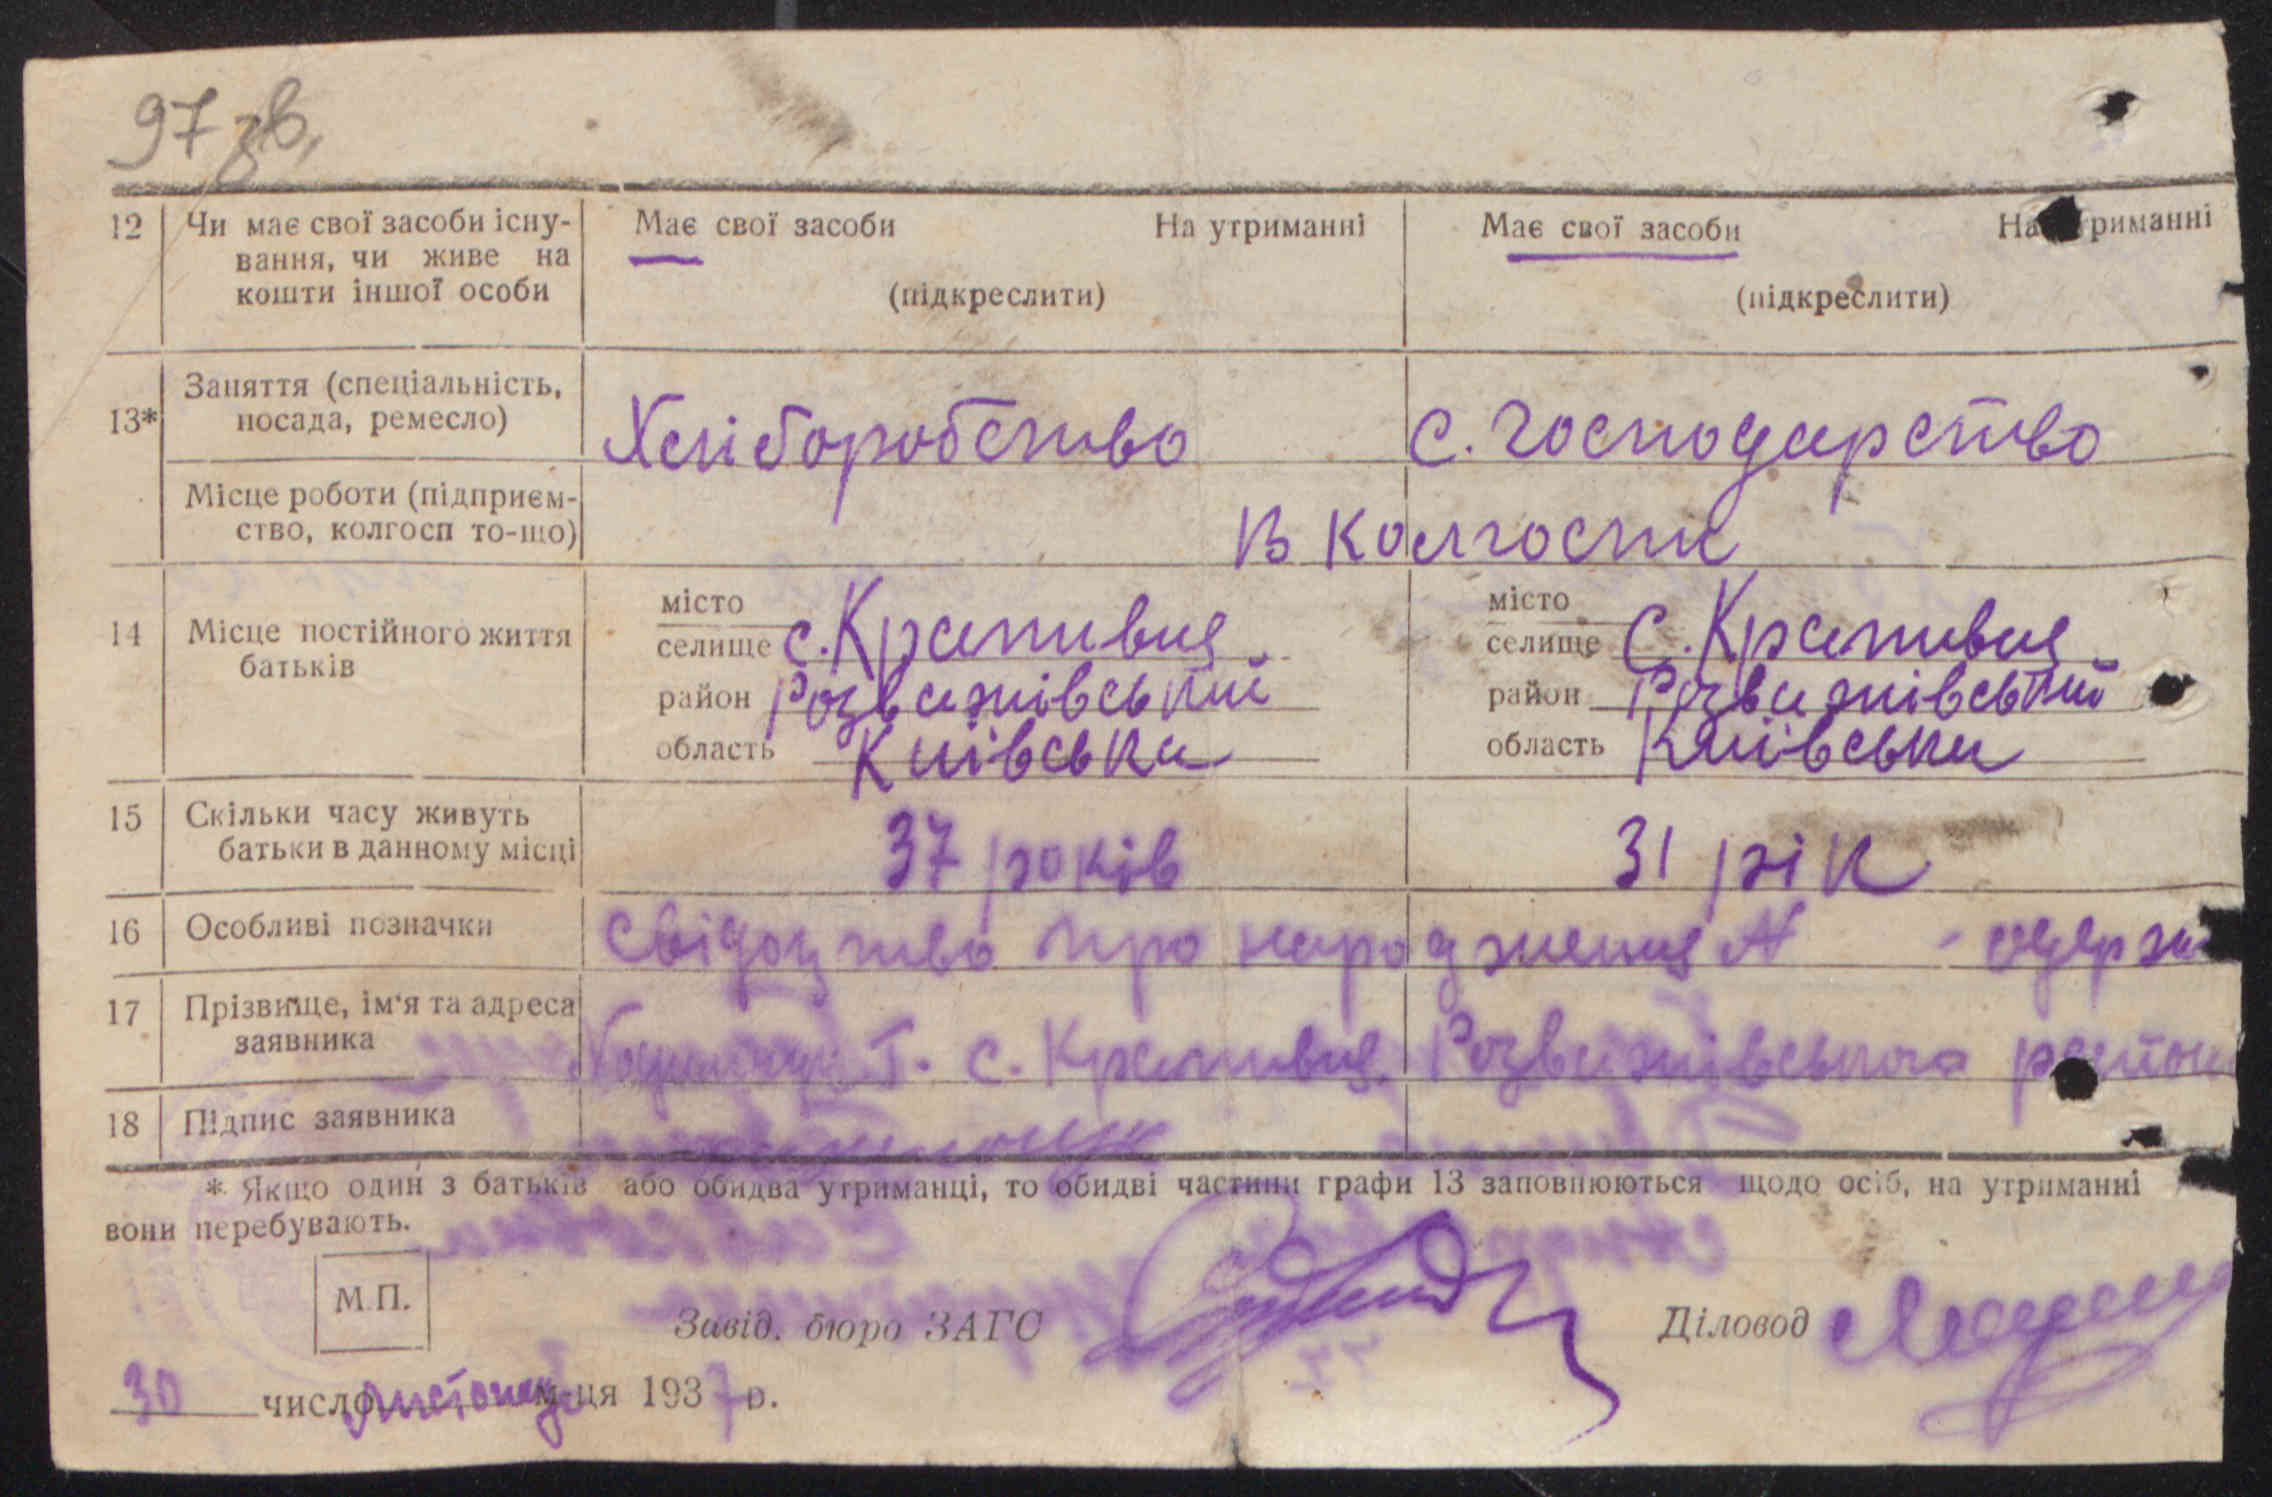 97 зв.
12 Чи має свої засоби існу- Має свої засоби На утриманні Має свої засоби На утриманні
вання, чи живе на
кошти іншої особи (підкреслити) (підкреслити)
Заняття (спеціальність,
13* посада, ремесло) Хліборобство С. Господарство
Місце роботи (підприєм-
ство, колгосп то-що) В колгоспи
місто місто
14 Місце постійного життя селище с. Крапивня селище С. Крапивня
батьків район Розважівський район Розважівський
область Київська область Київська
15 Скільки часу живуть
батьки в данному місці 37 років 31 рік
16 Особливі позначки Свідоцтво про народження № - одерж
17 Прізвище, ім'я та адреса
заявника Т. с. Крапивня Розважівського район
18 Підпис заявника
* Якщо один з батьків або обидва утриманці, то обидві частини графи 13 заповнюються щодо осіб, на утриманні
вони перебувають.
М.П.
Завід. бюро ЗАГС Діловод
30 число листопада м-ця 1937 р.